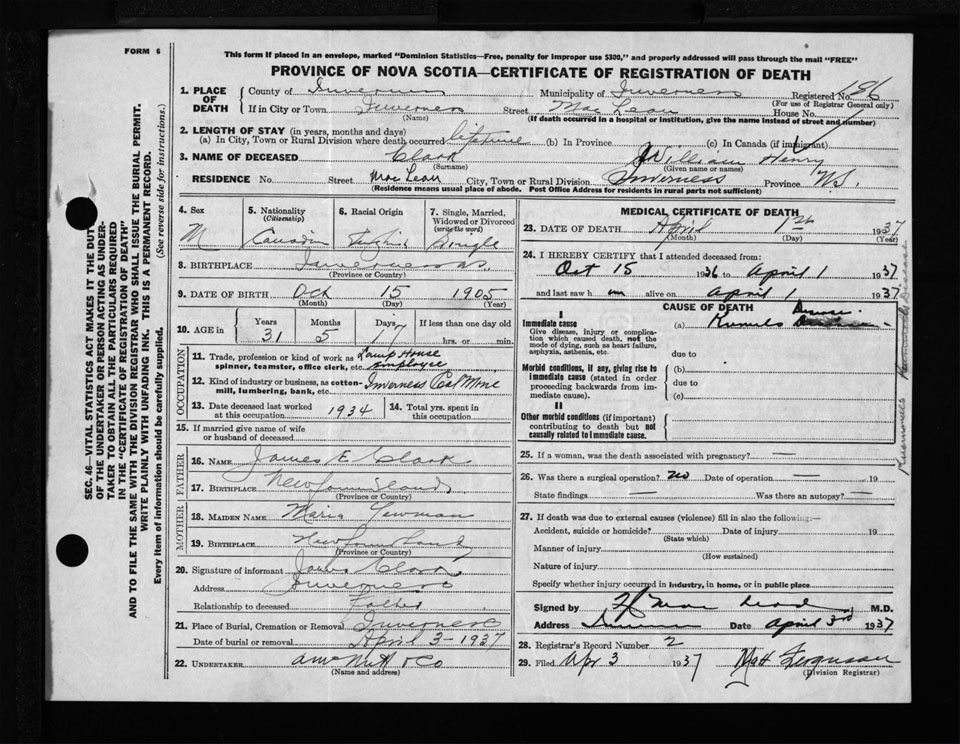 FORM 6
This form if placed in an envelope, marked "Dominion Statistics—Free, penalty for improper use $300," and properly addressed will pass through the mail "FREE"
PROVINCE OF NOVA SCOTIA—CERTIFICATE OF REGISTRATION OF DEATH
SEC. 46—VITAL STATISTICS ACT MAKES IT THE DUTY
OF THE UNDERTAKER OR PERSON ACTING AS UNDER-
TAKER TO OBTAIN ALL THE PARTICULARS REQUIRED
IN THE "CERTIFICATE OF REGISTRATION OF DEATH"
AND TO FILE THE SAME WITH THE DIVISION REGISTRAR WHO SHALL ISSUE THE BURIAL PERMIT.
WRITE PLAINLY WITH UNFADING INK. THIS IS A PERMANENT RECORD.
Every item of information should be carefully supplied. (See reverse side for instructions.)
1. PLACE OF DEATH
County of Inverness Municipality of Inverness Registered No. 186
(For use of Registrar General only)
If in City or Town Inverness Street Mac Lean House No.
(Name) (If death occurred in a hospital or institution, give the name instead of street and number)
2. LENGTH OF STAY (in years, months and days)
(a) In City, Town or Rural Division where death occurred lifetime (b) In Province (c) In Canada (if immigrant)
3. NAME OF DECEASED Clark William Henry
(Surname) (Given name or names)
RESIDENCE No. Street Mac Lean City, Town or Rural Division Inverness Province N.S.
(Residence means usual place of abode. Post Office Address for residents in rural parts not sufficient)
4. Sex
M
5. Nationality
(Citizenship)
Canadian
6. Racial Origin
English
7. Single, Married,
Widowed or Divorced
(write the word)
Single
8. BIRTHPLACE Inverness N.S.
(Province or Country)
9. DATE OF BIRTH Oct 15 1905
(Month) (Day) (Year)
10. AGE in Years Months Days If less than one day old
31 5 17 hrs. or min.
OCCUPATION
11. Trade, profession or kind of work as Lamp House
spinner, teamster, office clerk, etc. employee
12. Kind of industry or business, as cotton- Inverness Coal Mine
mill, lumbering, bank, etc.
13. Date deceased last worked
at this occupation 1934
14. Total yrs. spent in
this occupation
15. If married give name of wife
or husband of deceased
FATHER
16. NAME James E Clark
17. BIRTHPLACE Newfoundland
(Province or Country)
MOTHER
18. MAIDEN NAME Maria Newman
19. BIRTHPLACE Newfoundland
(Province or Country)
20. Signature of informant James Clark
Address Inverness
Relationship to deceased Father
21. Place of Burial, Cremation or Removal Inverness
Date of burial or removal April 3-1937
22. UNDERTAKER & Co
(Name and address)
MEDICAL CERTIFICATE OF DEATH
23. DATE OF DEATH April 1st 1937
(Month) (Day) (Year)
24. I HEREBY CERTIFY that I attended deceased from:
Oct 15 1936 to April 1 1937
and last saw him alive on April 1 1937
CAUSE OF DEATH
I
Immediate cause
Give disease, injury or complica-
tion which caused death, not the
mode of dying, such as heart failure,
asphyxia, asthenia, etc.
(a)
due to
Morbid conditions, if any, giving rise to
immediate cause (stated in order
proceeding backwards from im-
mediate cause).
(b)
due to
(c)
II
Other morbid conditions (if important)
contributing to death but not
causally related to immediate cause.
25. If a woman, was the death associated with pregnancy? —
26. Was there a surgical operation? No Date of operation 19
State findings — Was there an autopsy? —
27. If death was due to external causes (violence) fill in also the following:—
Accident, suicide or homicide? Date of injury 19
(State which)
Manner of injury
(How sustained)
Nature of injury
Specify whether injury occurred in industry, in home, or in public place
Signed by M.D.
Address Date April 3rd 1937
28. Registrar's Record Number 2
29. Filed Apr 3 1937 Matt Ferguson
(Division Registrar)